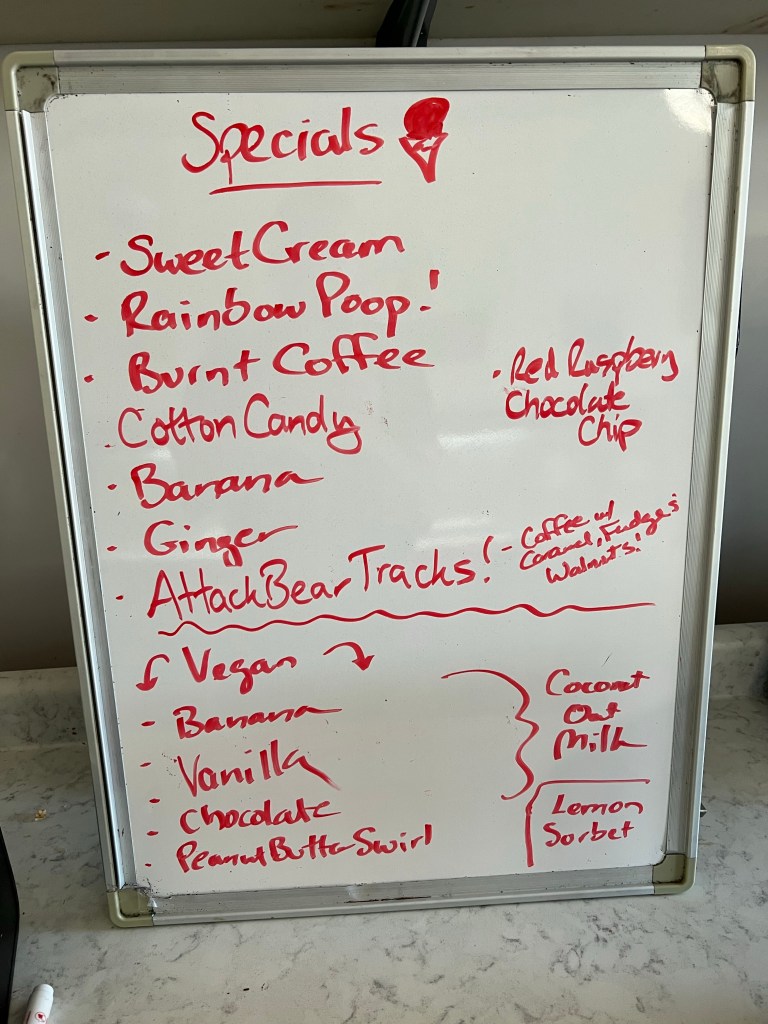 Specials
- Sweet Cream
- Rainbow Poop!
- Burnt Coffee
- Cotton Candy
- Banana
- Ginger
- Attack Bear Tracks! - Coffee w/
Caramel, Fudge &
Walnuts!
- Red Raspberry
Chocolate
Chip
Vegan
- Banana
- Vanilla
- Chocolate
- Peanut Butter Swirl
Coconut
Oat
Milk
Lemon
Sorbet